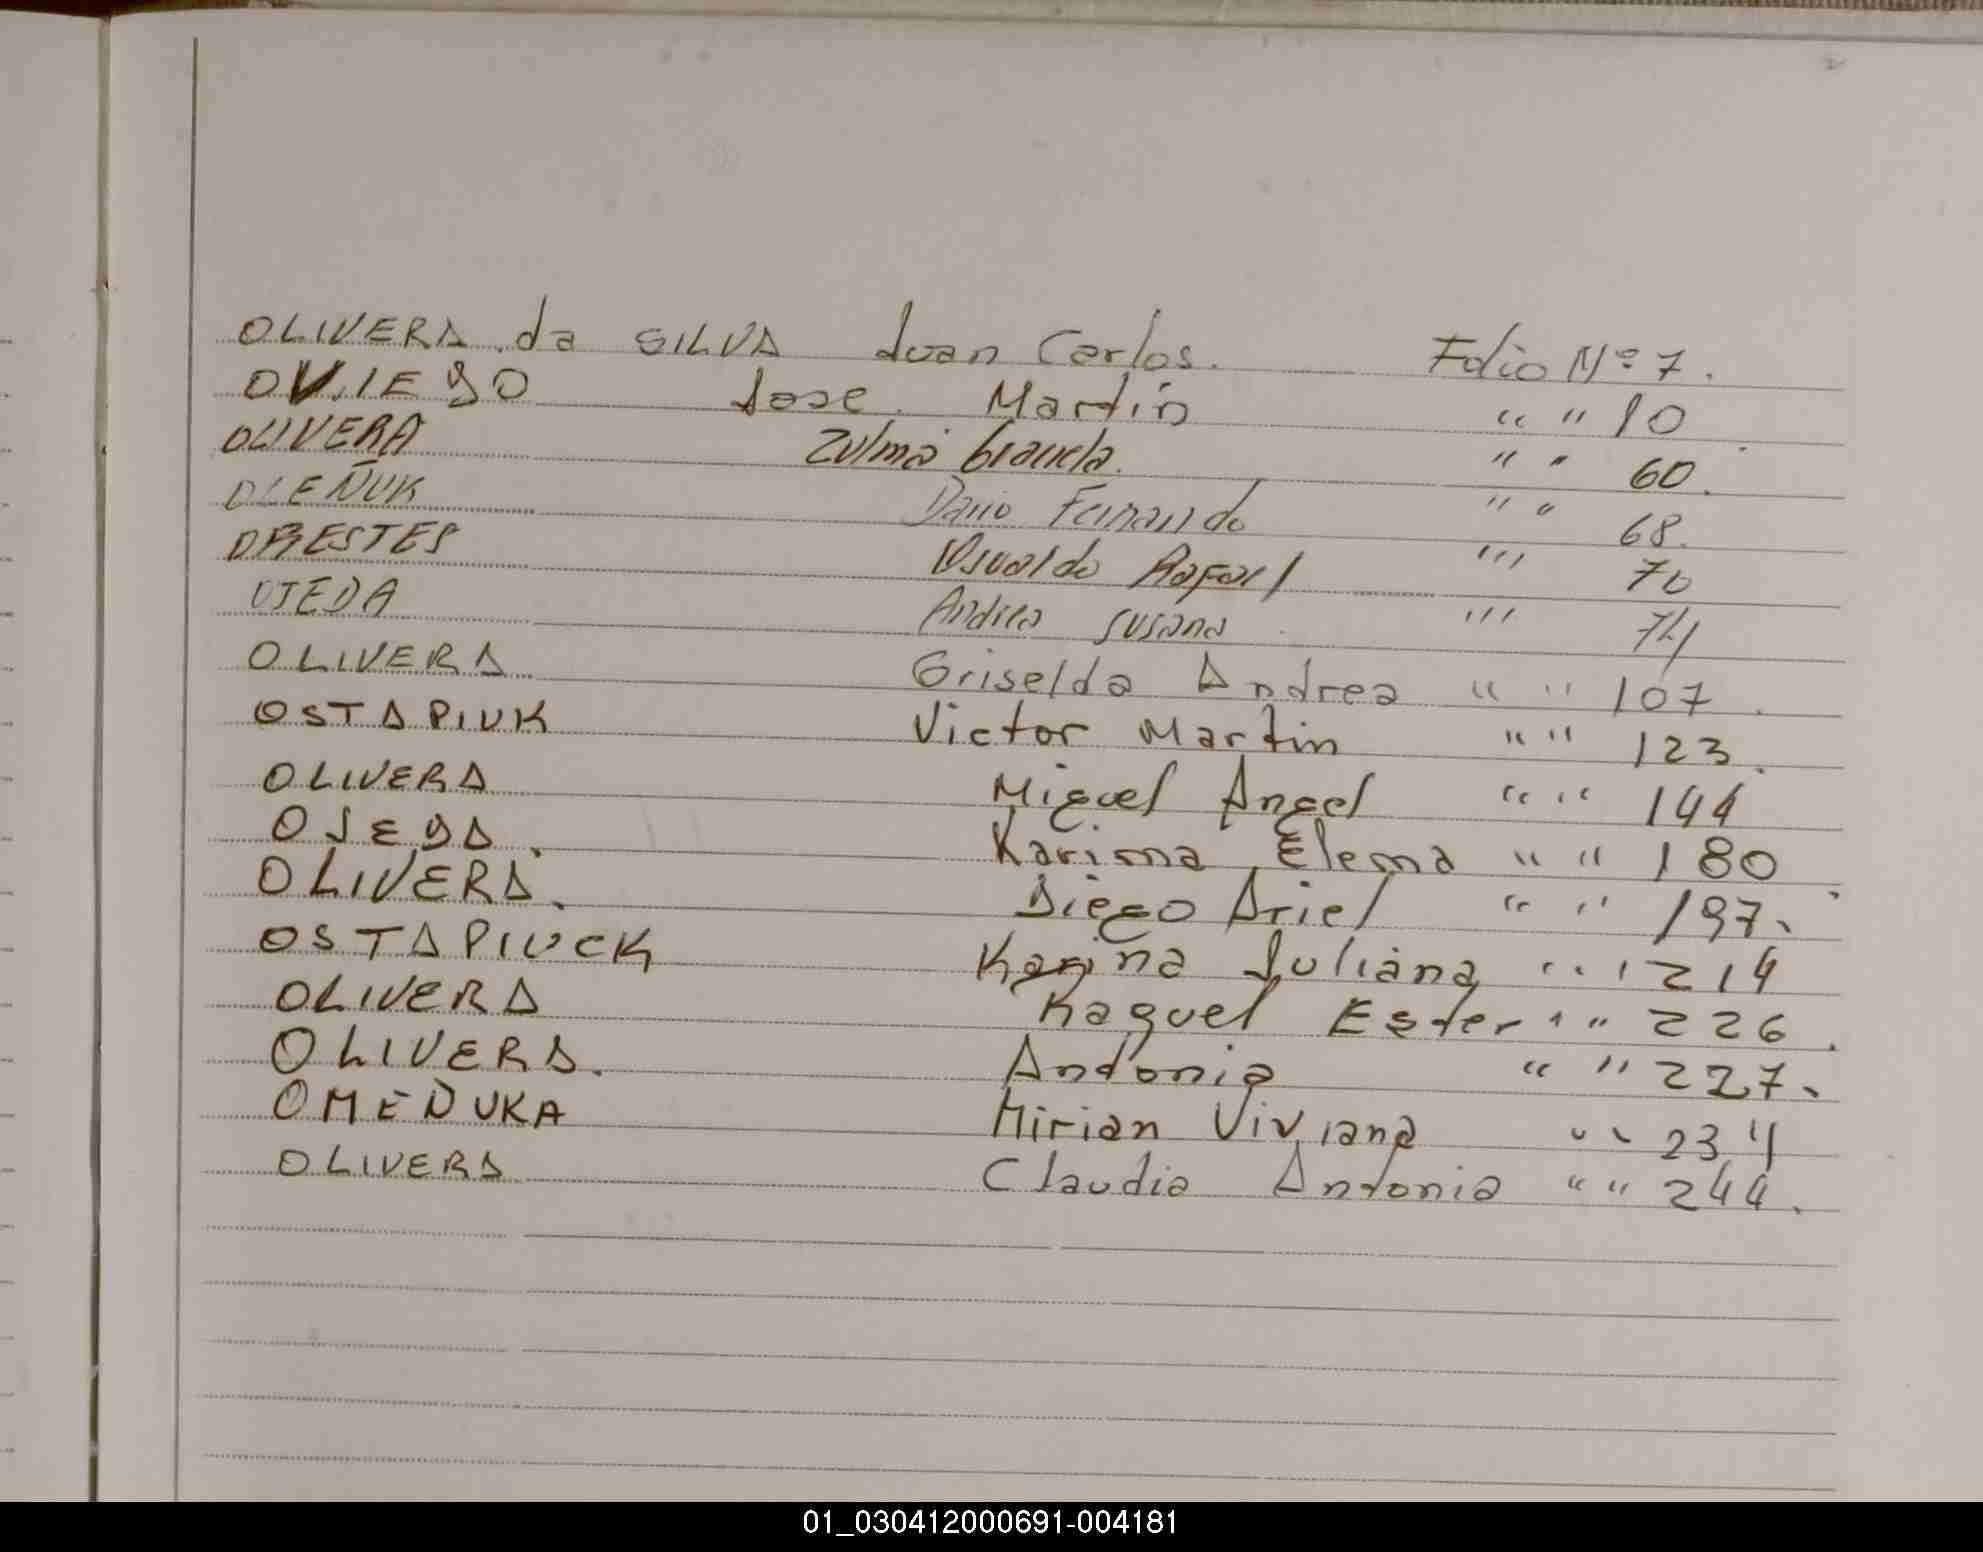 OLIVERA da SILVA Juan Carlos. Folio Nº 7.
OVIEDO Jose Martin " " 10
OLIVERA Zulma Graciela. " " 60.
OLEÑUK Dario Fernando " " 68.
ORESTES Osvaldo Rafael " " 70
OJEDA Andrea Susana " " 74
OLIVERA Griselda Andrea " " 107.
OSTAPIUK Victor Martin " " 123.
OLIVERA Miguel Angel " " 144
OJEDA. Karina Elena " " 180
OLIVERA. Diego Ariel " " 197.
OSTAPIUCK Karina Juliana " " 214
OLIVERA Raquel Ester " " 226.
OLIVERA. Antonia " " 227.
OMEÑUKA Mirian Viviana " " 234
OLIVERA Claudia Antonia " " 244.
01_030412000691-004181